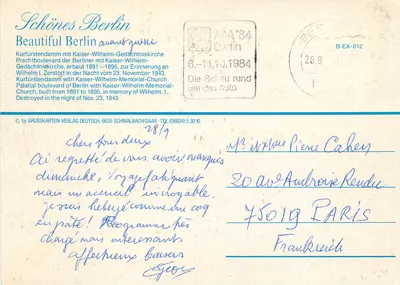 Schönes Berlin
Beautiful Berlin avant guerre
Kurfürstendamm mit Kaiser-Wilhelm-Gedächtniskirche
Prachtboulevard der Berliner mit Kaiser-Wilhelm-
Gedächtniskirche, erbaut 1891–1895, zur Erinnerung an
Wilhelm I. Zerstört in der Nacht vom 23. November 1943.
Kurfürstendamm with Kaiser-Wilhelm-Memorial-Church
Palatial boulevard of Berlin with Kaiser-Wilhelm-Memorial-
Church, built from 1891 to 1895, in memory of Wilhelm I.,
Destroyed in the night of Nov. 23, 1943
AAA '84
Berlin
6.–14.10.1984
Die Schau rund
um das Auto
B-EX-012
© by GRUSSKARTEN-VERLAG DEUTSCH, 6635 SCHWALBACH/SAAR
28/9
Chers tous deux
Ai regretté de vous avoir manqués
dimanche. Voyage fatigant
mais un accueil incroyable,
je suis hébergé comme un coq
en pâte! Programme très
chargé mais intéressants
affectueux baisers
Mr et Mme Pierre Cahen
20 av. Ambroise Rendu
75019 PARIS
Frankreich